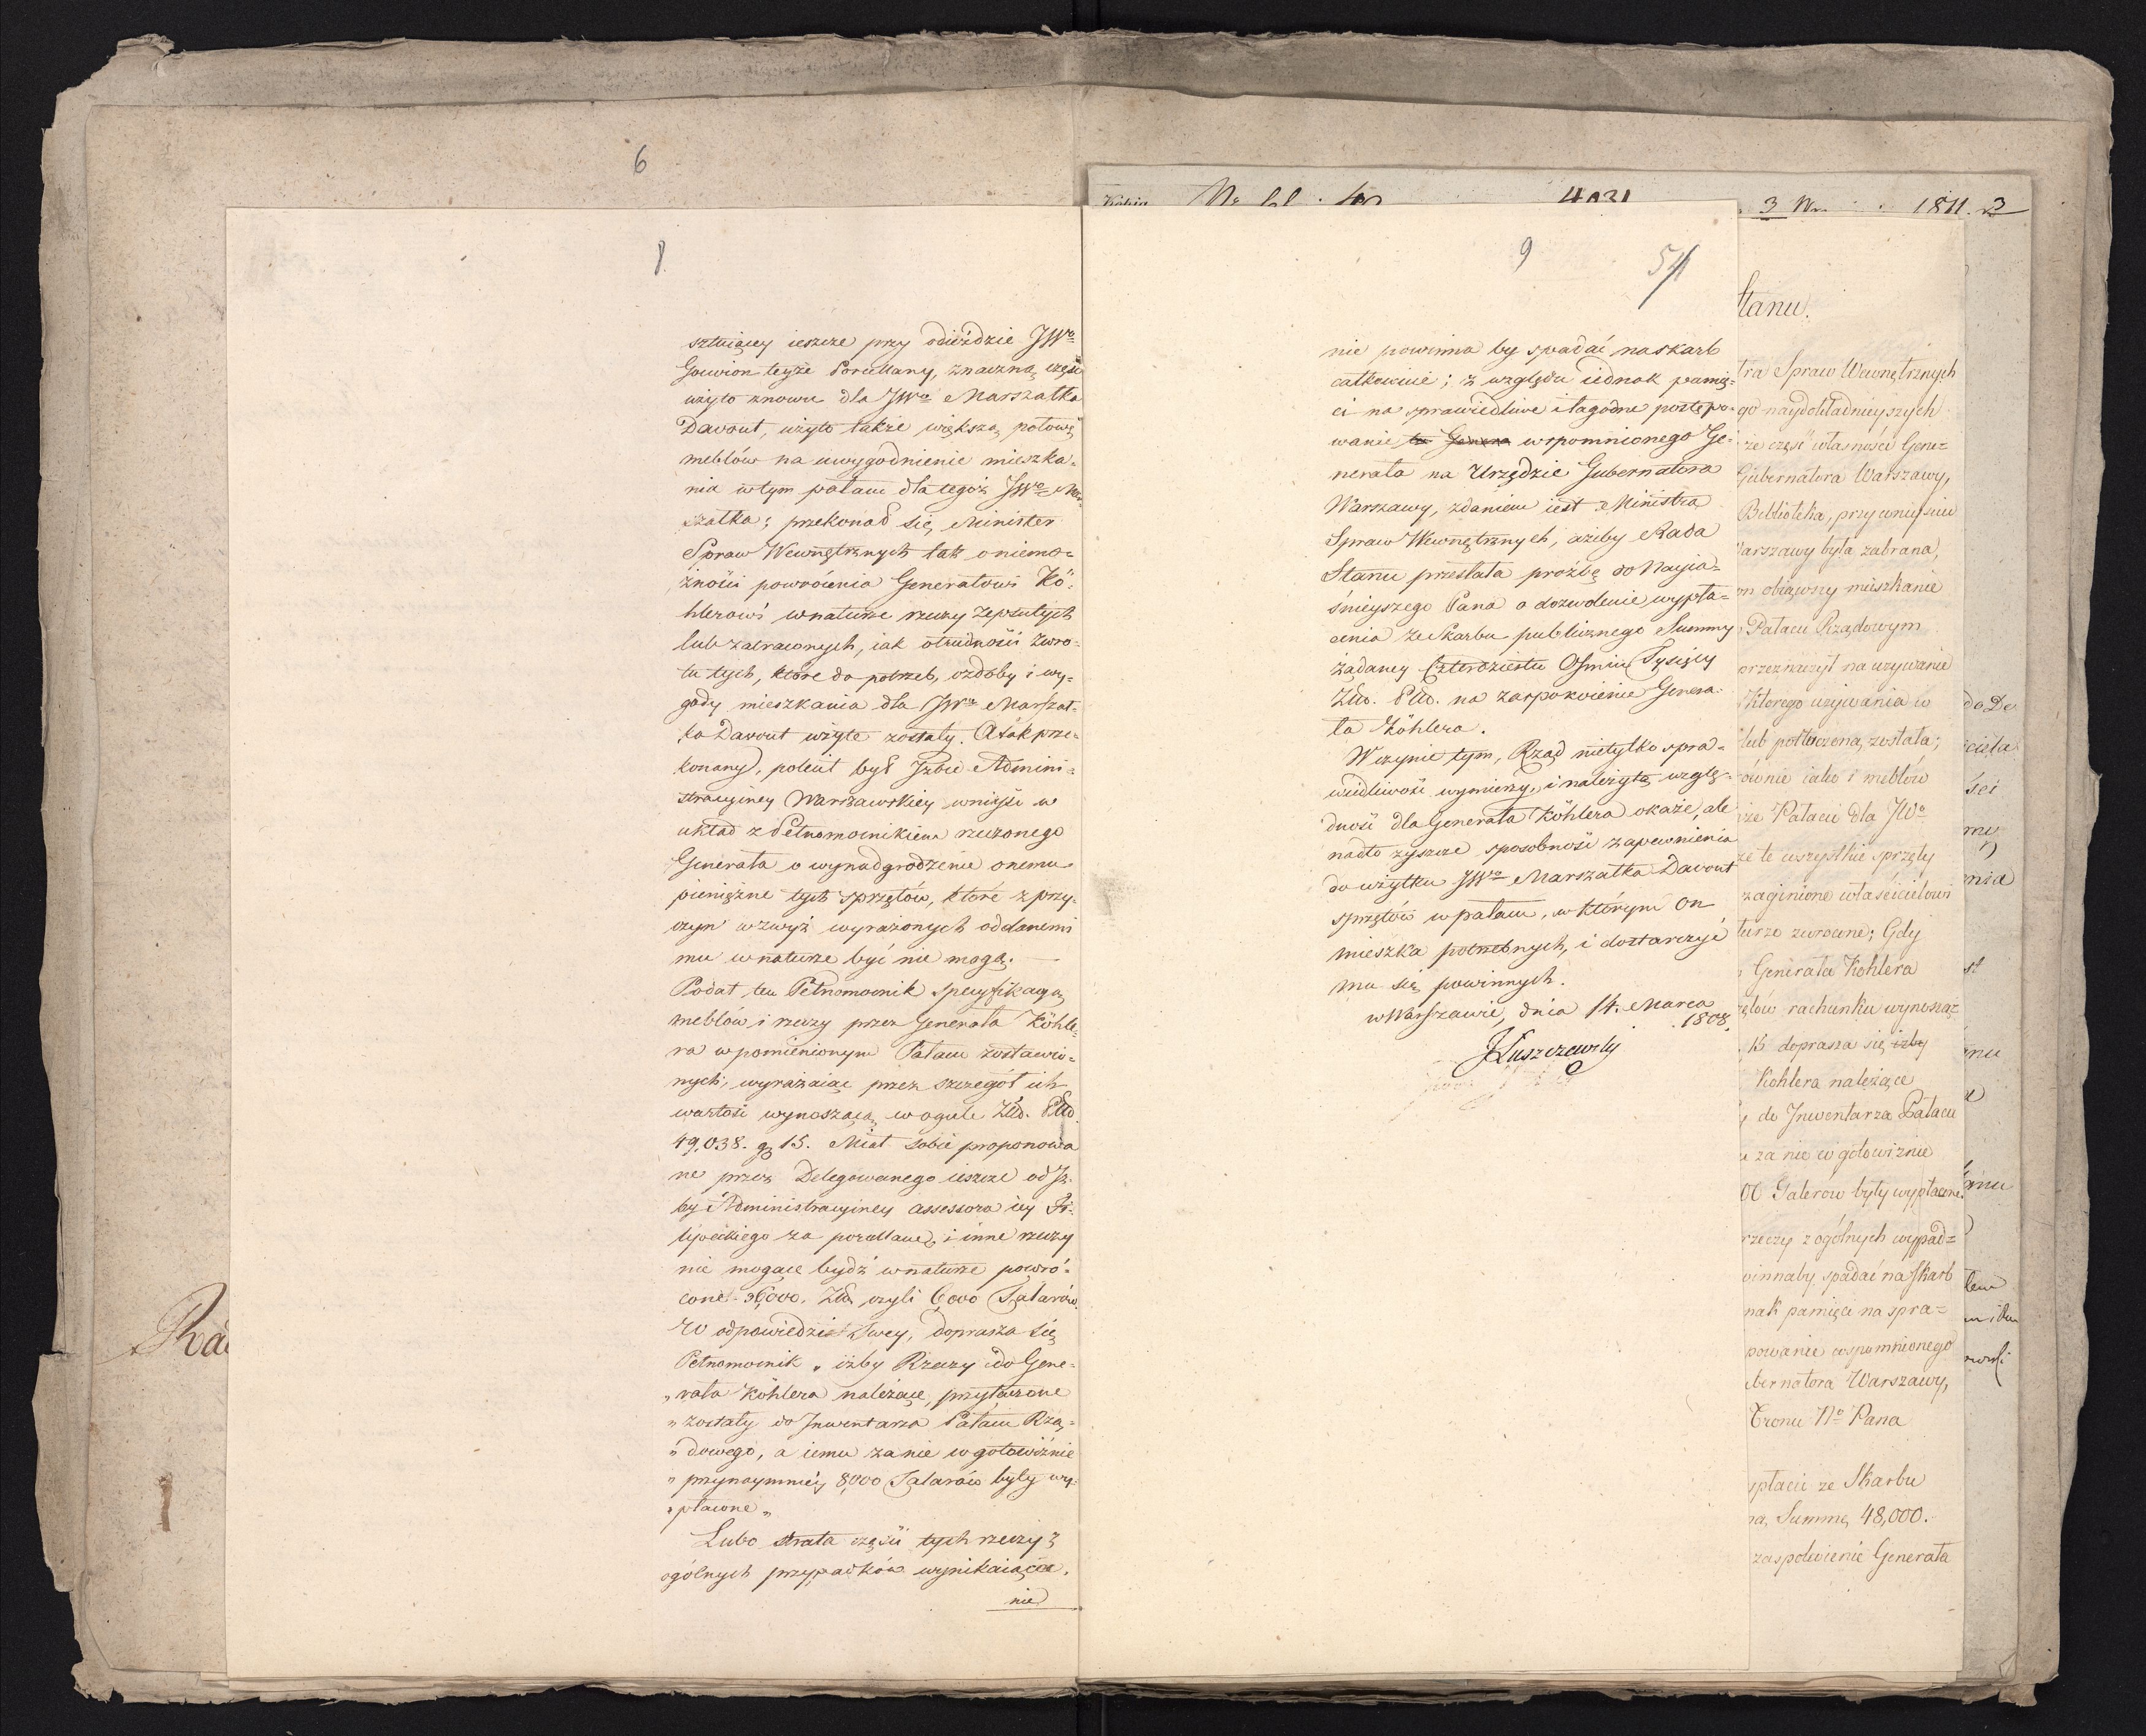 6
8
sztuiącey ieszcze przy odieździe JWo
Gouvion teyże Porcellany, znaczną część
użyto znowu dla JWo Marszałka
Davout, użyto także większą połowę
meblów na uwygodnienie mieszka=
nia w tym pałacu dla tegoż JWo Mar=
szałka; przekonał się Minister
Spraw Wewnętrznych tak o niemo=
żności powrócenia Generałowi Kö=
hlerowi w naturze rzeczy zepsutych
lub zatraconych, iak o trudności zwro=
tu tych, które do potrzeb, ozdoby i wy=
gody mieszkania dla JWo Marszał=
ka Davout użyte zostały. A tak prze=
konany, polecił był Izbie Admini=
stracyiney Warszawskiey wniyść w
układ z Pełnomocnikiem rzeczonego
Generała o wynadgrodzenie onemu
pieniężne tych sprzętów, które z przy=
czyn wzwyż wyrażonych oddanemi
mu w naturze być nie mogą.
Podał ten Pełnomocnik specyfikacyą
meblów i rzeczy przez Generała Köhle=
ra w pomienionym Pałacu zostawio=
nych, wyrażaiąc przez szczegół ich
wartość wynoszącą w ogule Złt. Pld.
49,038. g 15. Miał sobie proponowa
ne przez Delegowanego ieszcze od Iz=
by Administracyiney Assessora iey
za porcellanę i inne rzeczy
nie mogące bydź w naturze powró=
cone 36,000. Zł. czyli 6,000 Talarów.
W odpowiedzi Swey, doprasza się
Pełnomocnik „ iżby Rzeczy do Gene=
„ rała Köhlera należące, przyłączone
„ zostały do Inwentarza Pałacu Rzą=
„ dowego, a iemu za nie w gotowiźnie
„ przynaymniey 8,000 Talarów były wy=
„ płacone „
Lubo strata części tych rzeczy z
ogólnych przypadków wynikaiąca,
nie
9
54
nie powinna by spadać na skarb
całkowicie; z względu iednak pamię=
ci na sprawiedliwe i łagodne postępo=
wanie wspomnionego Ge=
nerała na Urzędzie Gubernatora
Warszawy, zdaniem iest Ministra
Spraw Wewnętrznych, ażeby Rada
Stanu przesłała proźbę do Nayia=
śnieyszego Pana o dozwolenie wypła=
cenia ze Skarbu publicznego Summy
żądaney Czterdziestu Ośmiu Tysięcy
Złt. Pld. na zaspokoienie Genera=
ła Köhlera.
W czynie tym, Rząd nietylko spra=
wiedliwość wymierzy, i należytą wzglę=
dność dla Generała Köhlera okaże, ale
nadto zyszcze sposobność zapewnienia
do użytku JWo Marszałka Davout
sprzętów w pałacu, w którym On
mieszka potrzebnych, i dostarczyć
mu się powinnych.
w Warszawie, dnia 14. Marca
1808.
JŁuszczewski
4031
3
1811. 3
Stanu.
tra Spraw Wewnętrznych
go naydokładnieyszych
że część własności Gene=
Gubernatora Warszawy,
Biblioteka, przy wniyściu
arszawy była zabrana,
on obiąwszy mieszkanie
Pałacu Rządowym
przeznaczył na używanie
którego używania w
lub potłuczoną została;
ównie iako i meblów
że Pałacu dla JWo
że te wszystkie sprzęty
zaginione właścicielowi
turze zwrócone; Gdy
Generała Kohlera
zętów rachunku wynoszą=
15 doprasza się iżby
Kohlera należące
do Inwentarza Pałacu
za nie w gotowiźnie
00 Talerow były wypłacone.
rzeczy z ogólnych wypad=
winnaby spadać na Skarb
nak pamięci na spra=
powanie wspomnionego
bernatora Warszawy,
Tronu No Pana
płacić ze Skarbu
Summę 48,000.
zaspokoienie Generała